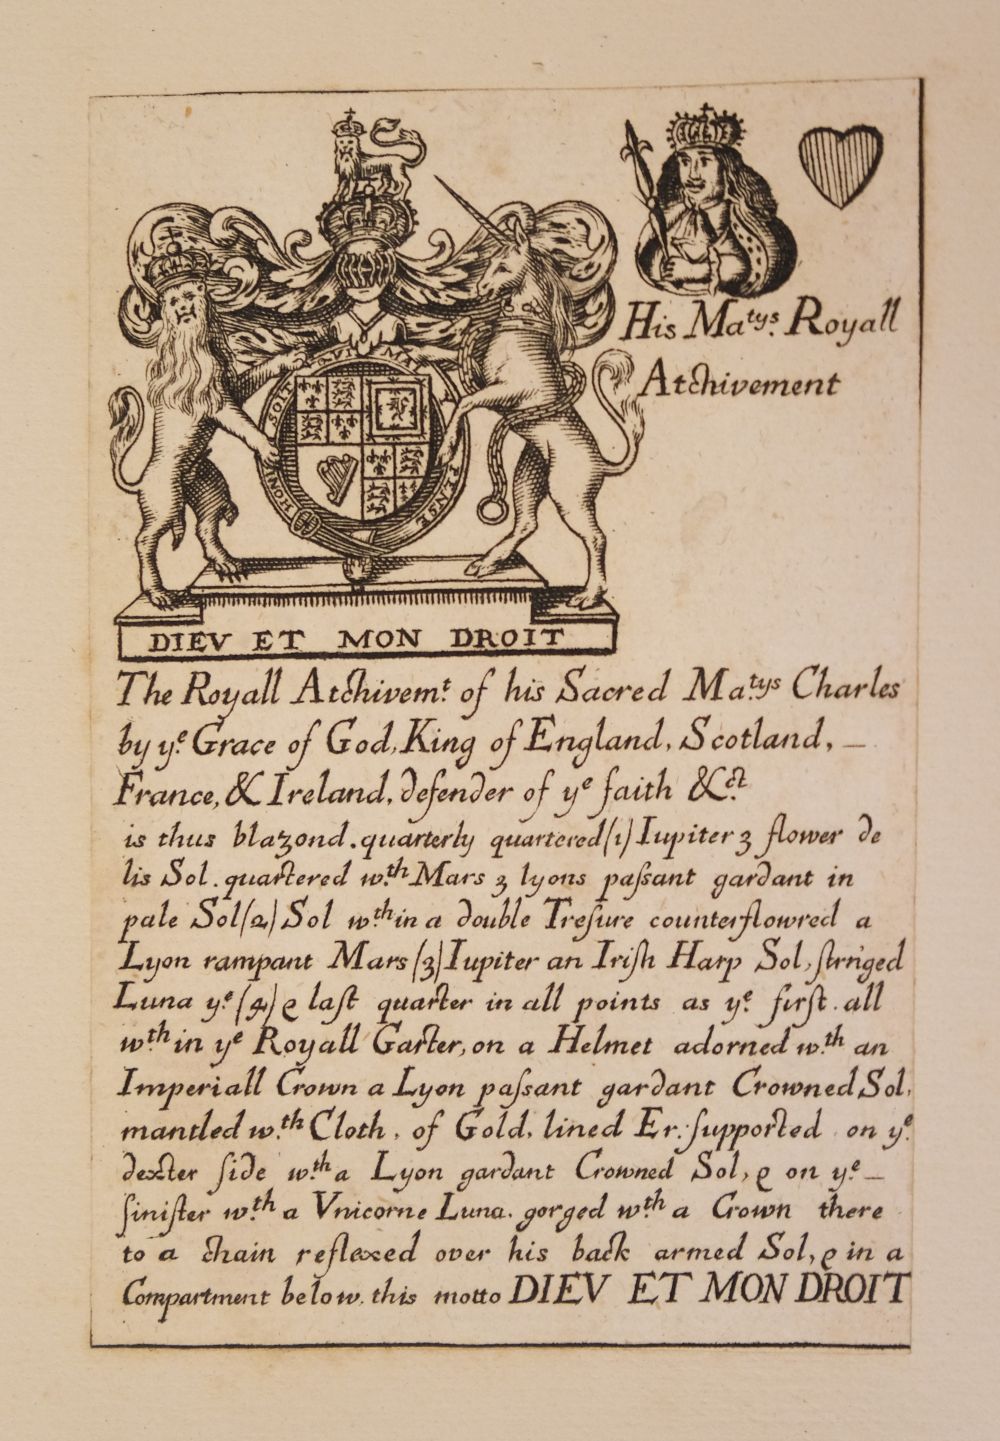 His Ma.tys Royall
Atchivement
HONI SOIT QVI MAL PENSE
DIEV ET MON DROIT
The Royall Atchivem.t of his Sacred Ma.tys Charles
by y.e Grace of God, King of England, Scotland, –
France, & Ireland, defender of y.e faith &c.t
is thus blazond. quarterly quartered (1) Iupiter 3 flower de
lis Sol. quartered w.th Mars 3 lyons paſsant gardant in
pale Sol (2) Sol w.th in a double Treſure counterflowred a
Lyon rampant Mars (3) Iupiter an Iriſh Harp Sol, ſtringed
Luna y.e (4) & laſt quarter in all points as y.e firſt. all
w.th in y.e Royall Garter, on a Helmet adorned w.th an
Imperiall Crown a Lyon paſsant gardant Crowned Sol,
mantled w.th Cloth, of Gold, lined Er: ſupported on y.e
dexter ſide w.th a Lyon gardant Crowned Sol, & on y.e –
ſiniſter w.th a Vnicorne Luna. gorged w.th a Crown there
to a chain reflexed over his back armed Sol, & in a
Compartment below. this motto DIEV ET MON DROIT